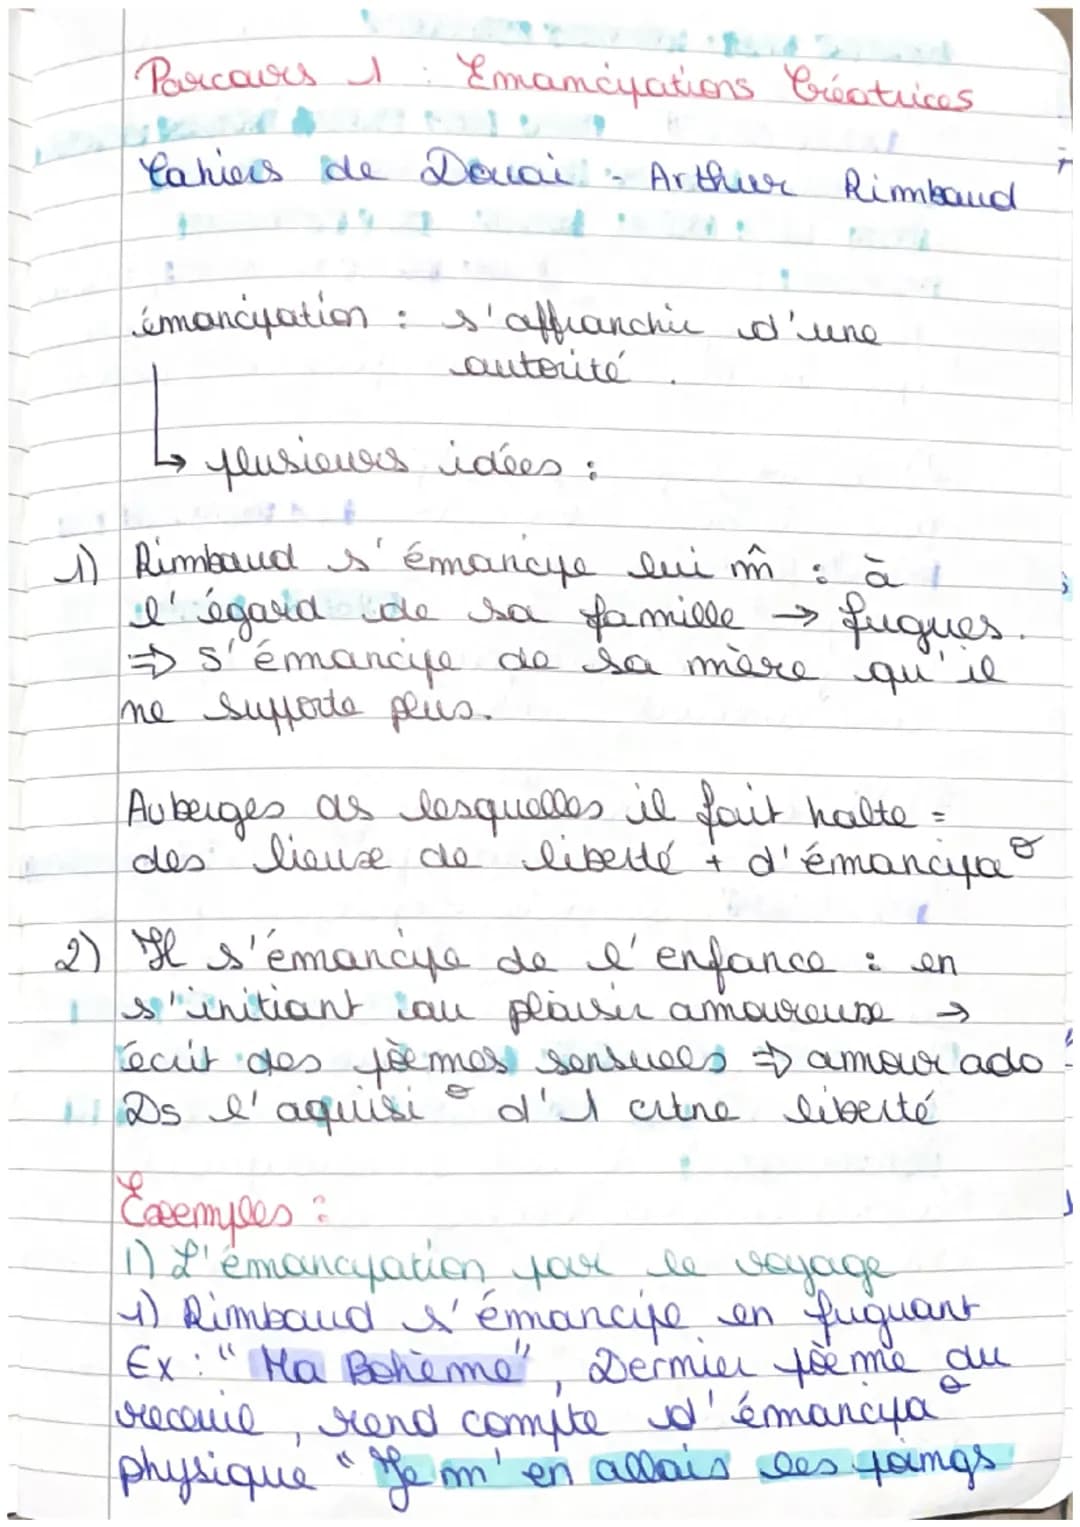 Parcours 1 : Emancipations Créatrices
Cahiers de Douai - Arthur Rimbaud
émancipation : s'affranchir d'une
autorité.
↳ plusieurs idées :
1) Rimbaud s'émancipe lui m̂ : à
l'égard de sa famille → fugues.
⇒ s'émancipe de sa mère qu'il
ne supporte plus.
Auberges ds lesquelles il fait halte =
des lieux de liberté + d'émancipaº
2) Il s'émancipe de l'enfance : en
s'initiant au plaisir amoureux →
écrit des poèmes sensuels ⇒ amour ado
Ds l'aquisiº d'1 crtne liberté
Exemples :
1) L'émancipation par le voyage
1) Rimbaud s'émancipe en fuguant
Ex : "Ma Bohème", Dernier poème du
recueil, rend compte d'émancipaº
physique "Je m'en allais les poings